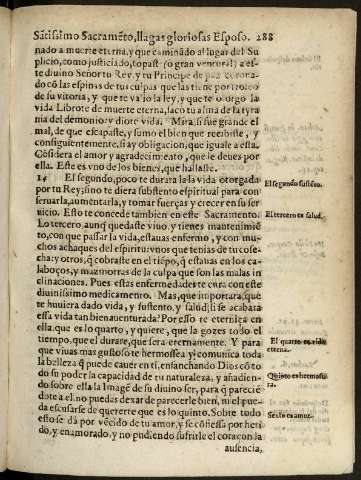 Sātissimo Sacramēto, llagas gloriosas Esposo. 288
nado a muerte eterna, y que caminādo al lugar del Su
plicio, como justiciado, topaste (o gran ventura!) a es-
te diuino Señor tu Rey, y tu Principe de paz corona-
do cō las espinas de tus culpas que las tiene por troféo
de su vitoria, y que te valio la ley, y que te otorgo la
vida Librote de muerte eterna, saco tu alma de la tyra
nia del demonio: y diote vida. Mira, si fue grande el
mal, de que escapaste, y sumo el bien que recibiste, y
consiguientemente, si ay obligacion, que iguale a esta.
Cōsidera el amor y agradecimiēto, que le deues por
ella. Este es vno de los bienes, que hallaste.
14 El segundo, poco te durara la la vida otorgada
por tu Rey; si no te diera substento espiritual para con-
seruarla, aumentarla, y tomar fuerças y crecer en su ser
uicio. Esto te concede tambien en este Sacramento.
Lo tercero, aunq̄ quedaste viuo, y tienes mantenimiē
to, con que passar la vida, estauas enfermo, y con mu-
chos achaques del espiritu: vnos que tenias de tu cose-
cha: y otros, q̄ cobraste en el tiēpo, q̄ estauas en los ca-
laboços, y mazmorras de la culpa que son las malas in
clinaciones. Pues estas enfermedades te cura con este
diuinissimo medicamento. Mas, que importara, que
te huuiera dado vida, y sustento, y salud, si se acabara
essa vida tan bienauenturada? Por esso te eterniza en
ella, que es lo quarto, y quiere, que la gozes todo el
tiempo, que el durare, que sera eternamente. Y para
que viuas mas gustoso te hermossea y comunica toda
la belleza q̄ puede cauer en ti, ensanchando Dios cō to
do su poder la capacidad de tu naturaleza, y añadien-
do sobre ella la Imagē de su diuino ser, para q̄ parecié
dote a el, no puedas dexar de parecerle bien, ni el pue-
da escusarse de quererte que es lo quinto. Sobre todo
esto se dà por vēcido de tu amor, y se cōfiessa por heri
do, y enamorado, y no pudiendo sufrirle el coraçon la
ausencia,
El segundo sustēto.
El tercero es salud.
El quarto es vida
eterna.
Quinto es hermosu
ra.
Sexto es amor.